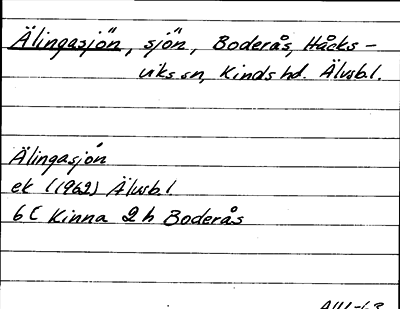 Älingasjön, sjön, Boderås, Håcks-
viks sn, Kinds hd. Älvsb.l.
Älingasjön
ek (1962) Älvsb.l
6 C Kinna 2 h Boderås